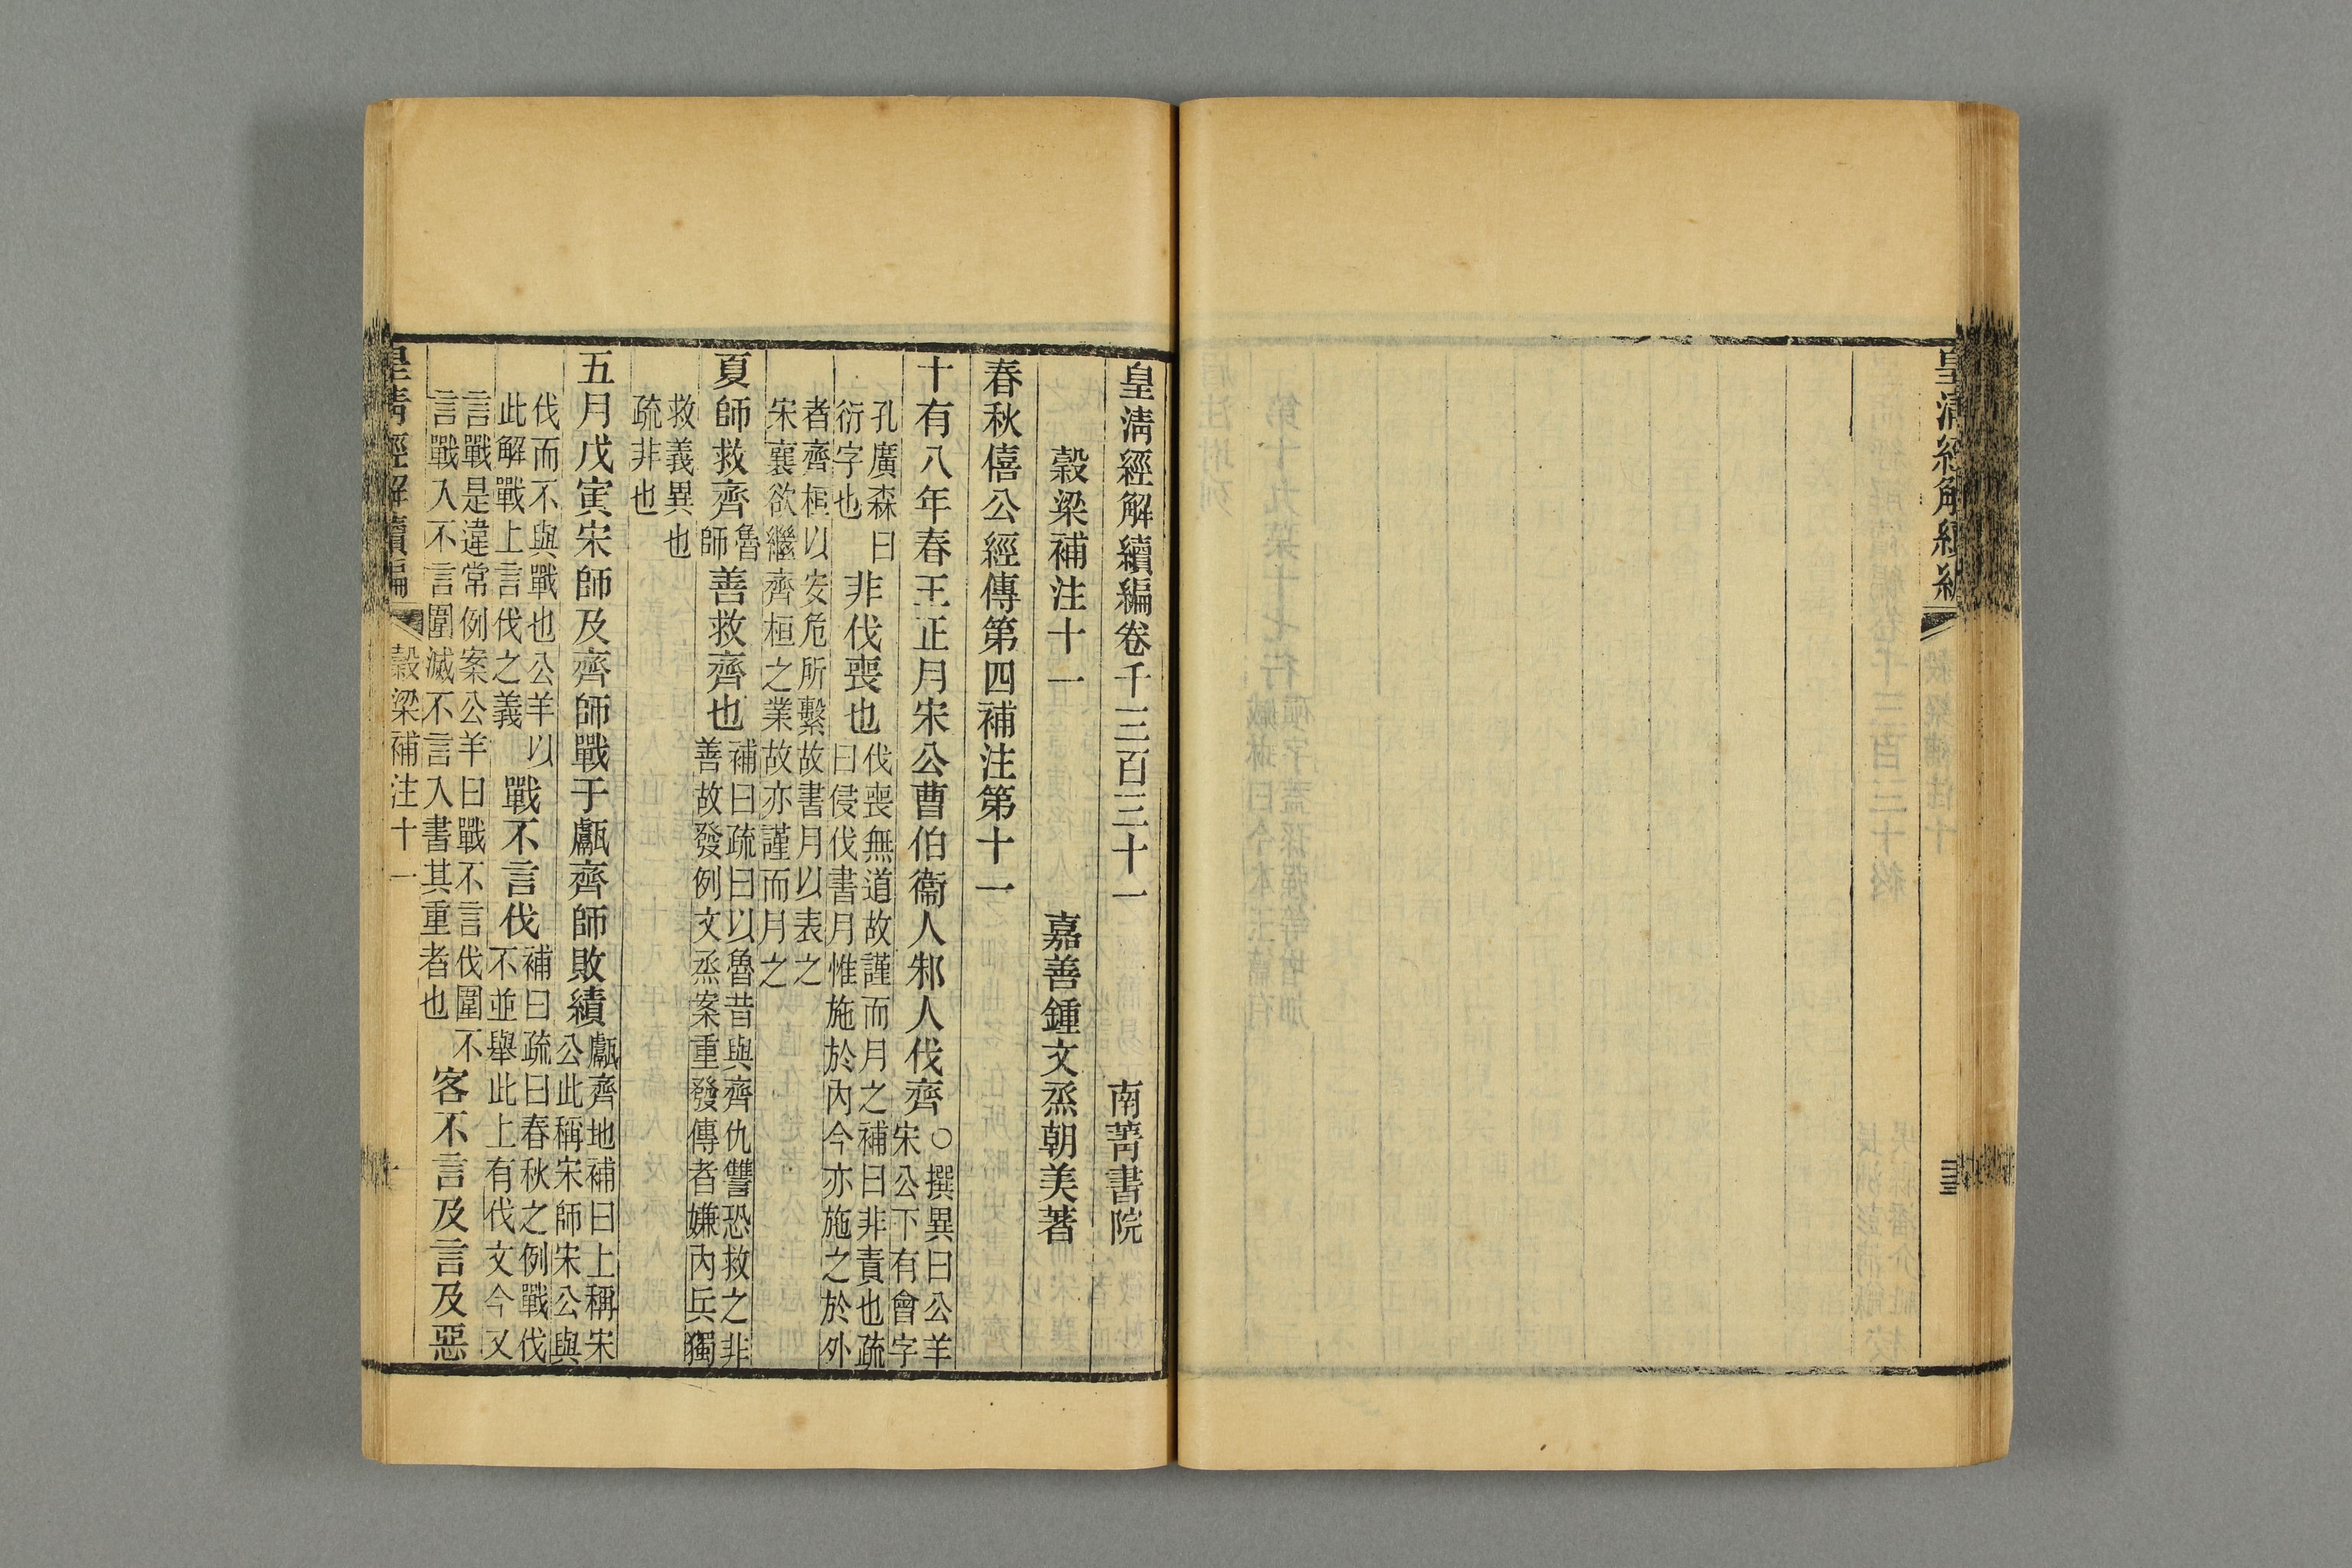 皇清經解續編卷千三百三十一 南菁書院
穀梁補注十一 嘉善鍾文烝朝美著
春秋僖公經傳第四補注第十一
十有八年春王正月宋公曹伯衞人邾人伐齊○撰異曰公羊宋公下有會字
孔廣森曰衍字也非伐喪也伐喪無道故謹而月之補曰非責也疏曰侵伐書月惟施於內今亦施之於外
者齊桓以安危所繫故書月以表之宋襄欲繼齊桓之業故亦謹而月之
夏師救齊魯師善救齊也補曰疏曰以魯昔與齊仇讐恐救之非善故發例文烝案重發傳者嫌內兵獨
救義異也疏非也
五月戊寅宋師及齊師戰于甗齊師敗績甗齊地補曰上稱宋公此稱宋師宋公與
伐而不與戰也公羊以此解戰上言伐之義戰不言伐補曰疏曰春秋之例戰伐不並舉此上有伐文今又
言戰是違常例案公羊曰戰不言伐圍不言戰入不言圍滅不言入書其重者也客不言及言及惡
皇清經解續編 穀梁補注十一 一